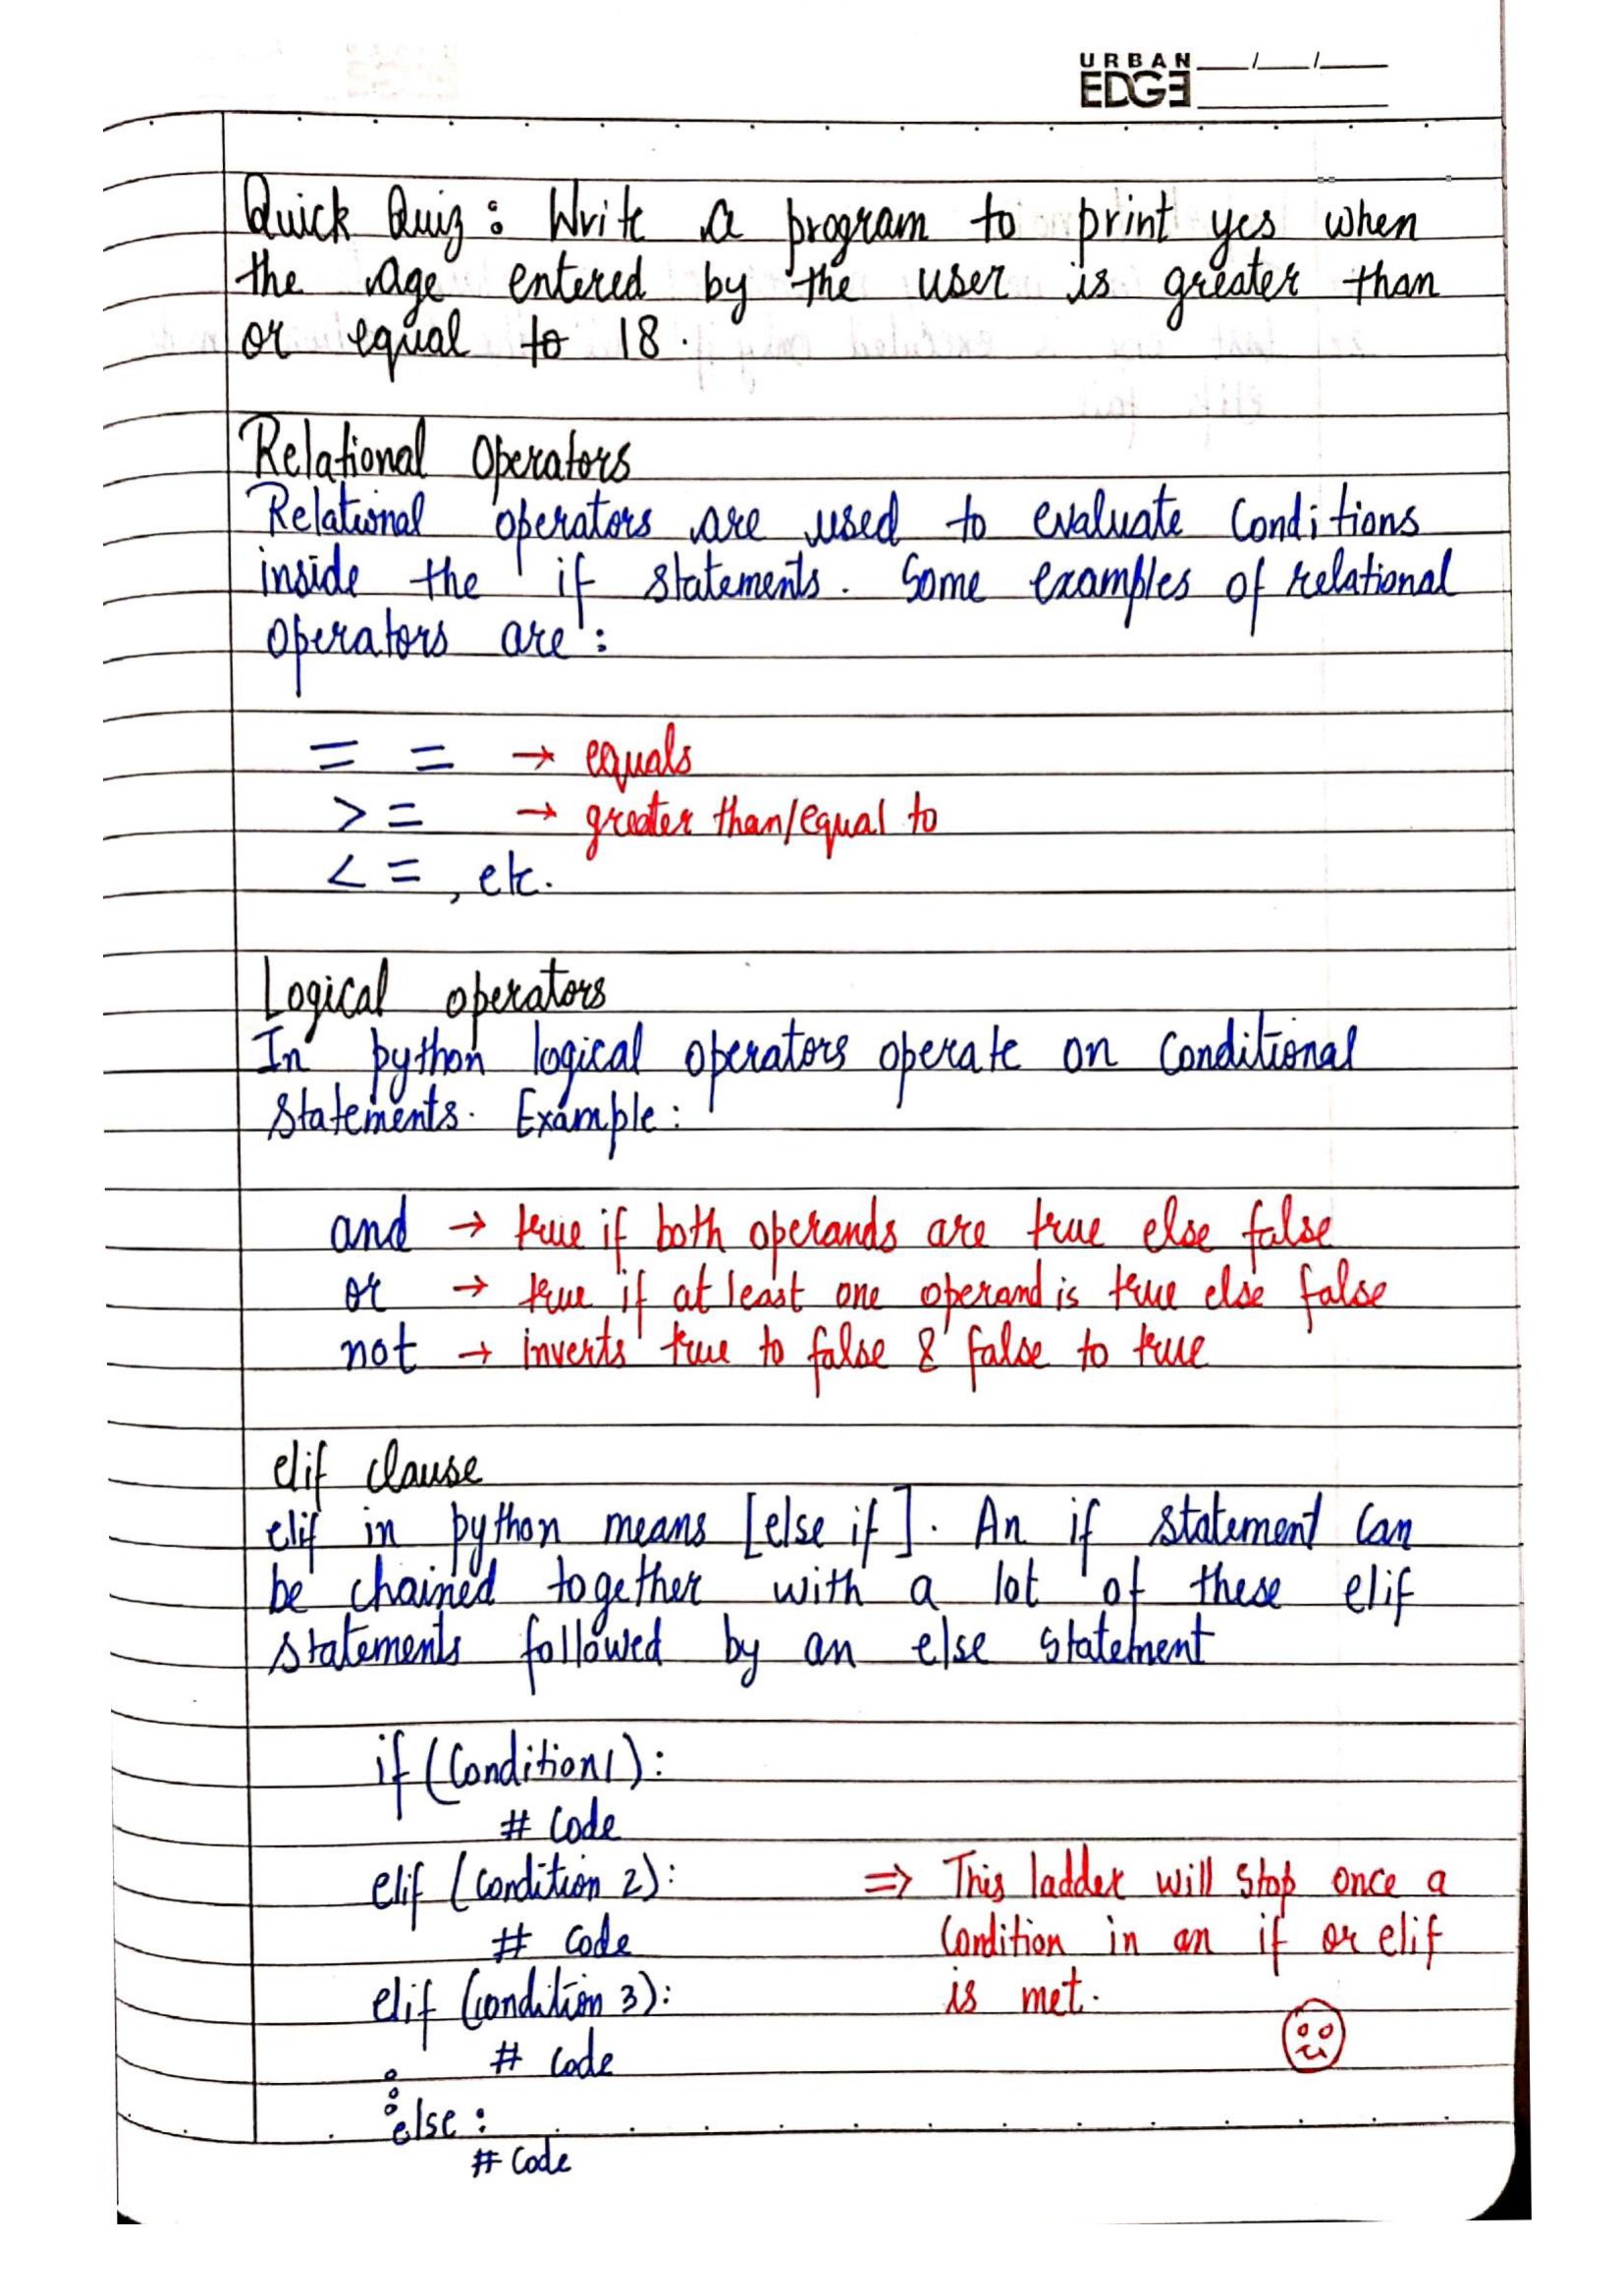 URBAN
EDGE
Quick Quiz: Write a program to print yes when
the age entered by the user is greater than
or equal to 18.
Relational Operators
Relational operators are used to evaluate Conditions
inside the if statements. Some examples of relational
operators are:
= = → equals
> = → greater than/equal to
< = , etc.
Logical operators
In python logical operators operate on Conditional
Statements. Example:
and → true if both operands are true else false
or → true if at least one operand is true else false
not → inverts true to false & false to true
elif clause
elif in python means [else if]. An if statement Can
be chained together with a lot of these elif
statements followed by an else statement
if (Condition1):
# Code
elif (Condition 2): ⇒ This ladder will stop once a
# Code Condition in an if or elif
elif (condition 3): is met.
# Code
else :
# Code